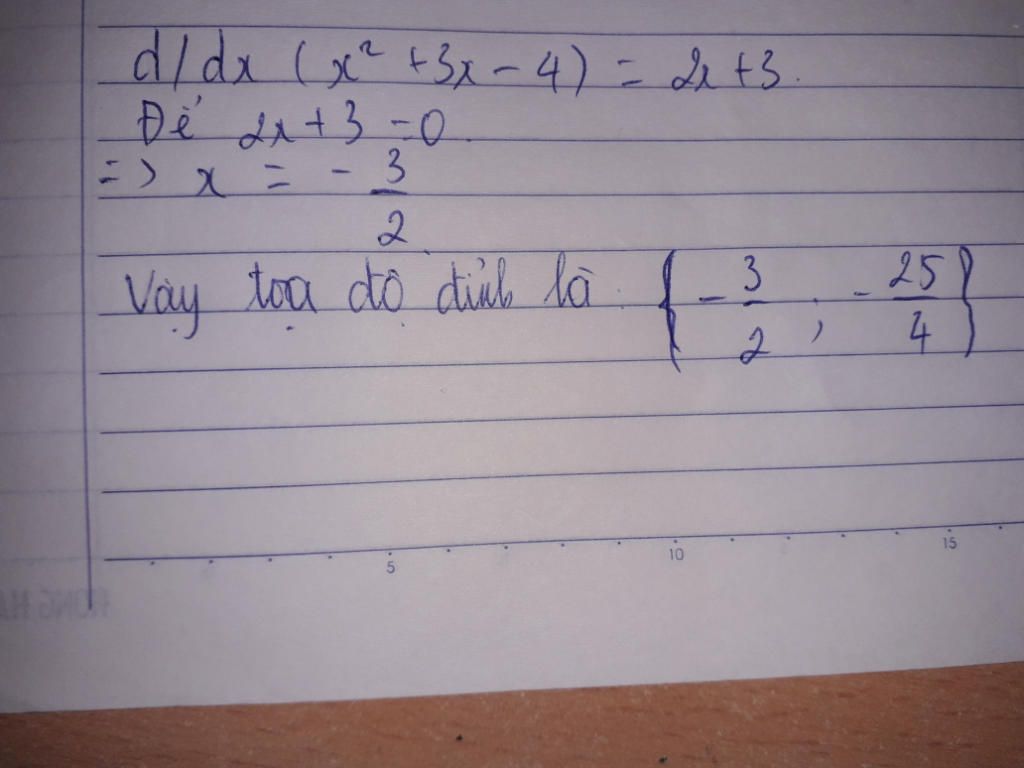 d/dx (x² + 3x - 4) = 2x + 3.
Để 2x + 3 = 0.
=> x = - 3/2.
Vậy tọa độ đỉnh là {- 3/2 ; - 25/4}
5 10 15
HONG HA